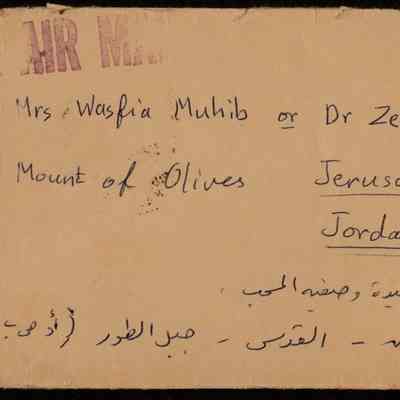 AIR MA
Mrs Wasfia Muhib or Dr Ze
Mount of Olives Jerusa
Jorda
يدة وصفيه المحب .
- القدس - جبل الطور (